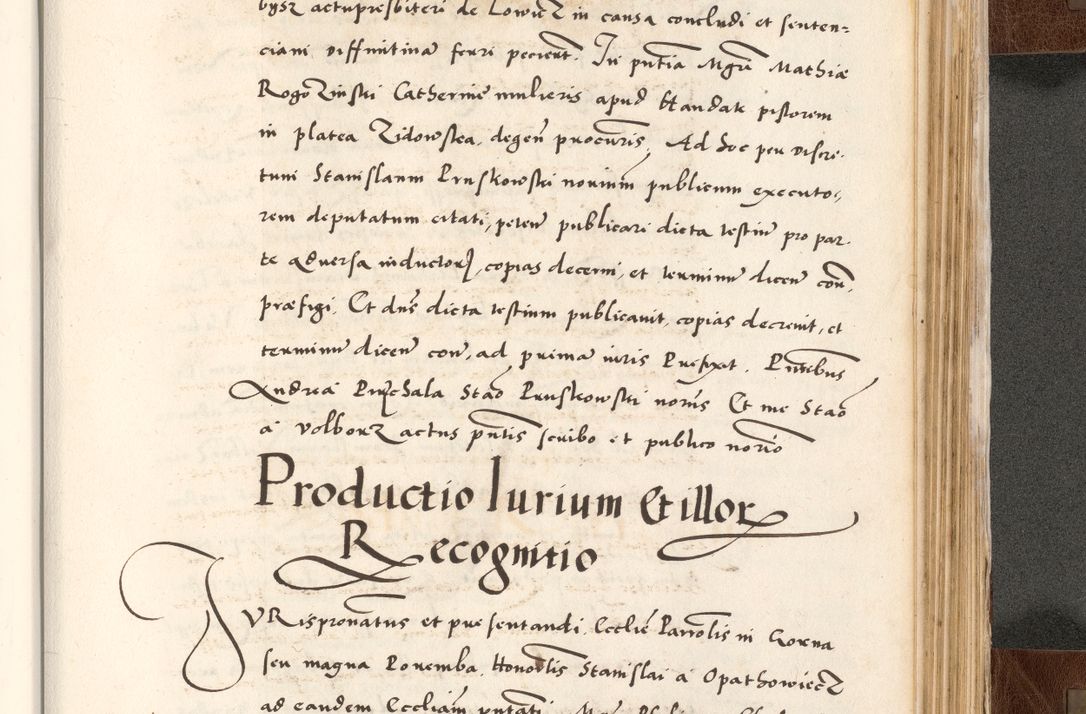 bysz actupresbiteri de Lowicz in causa concludi et senten-
ciam diffinitinā ferri pecieñt. In pñtia Mgrī Mathiæ
Rogozinski Catherine mulieris apud Handak pistorem
in platea Zidowska, degeñ procuris, Ad hoc per discre-
tum Stanislaum Pruskowski norium publicum executo,
rem deputatum citati, peteñ publicari dicta testiū pro par-
te adversa inductorꝝ, copias decerni, et terminū diceñ con̄,
præfigi, Et dn̄s dicta testium publicavit, copias decrevit, et
terminū diceñ con̄, ad primā iuris Prefixit. Pñtibus
Andrea Stao Pruskowski noriis Et me Stao
à Volborz actus pñtis scribo et publico norio
Productio Iurium Et illorꝝ
Recognitio
IVRispronatus et presentandi, Ecclie Parrolis in Gorna
seu magna Poremba, Honorlis Stanislai à Opathowiecz
ad eandem Eccliam pñtati